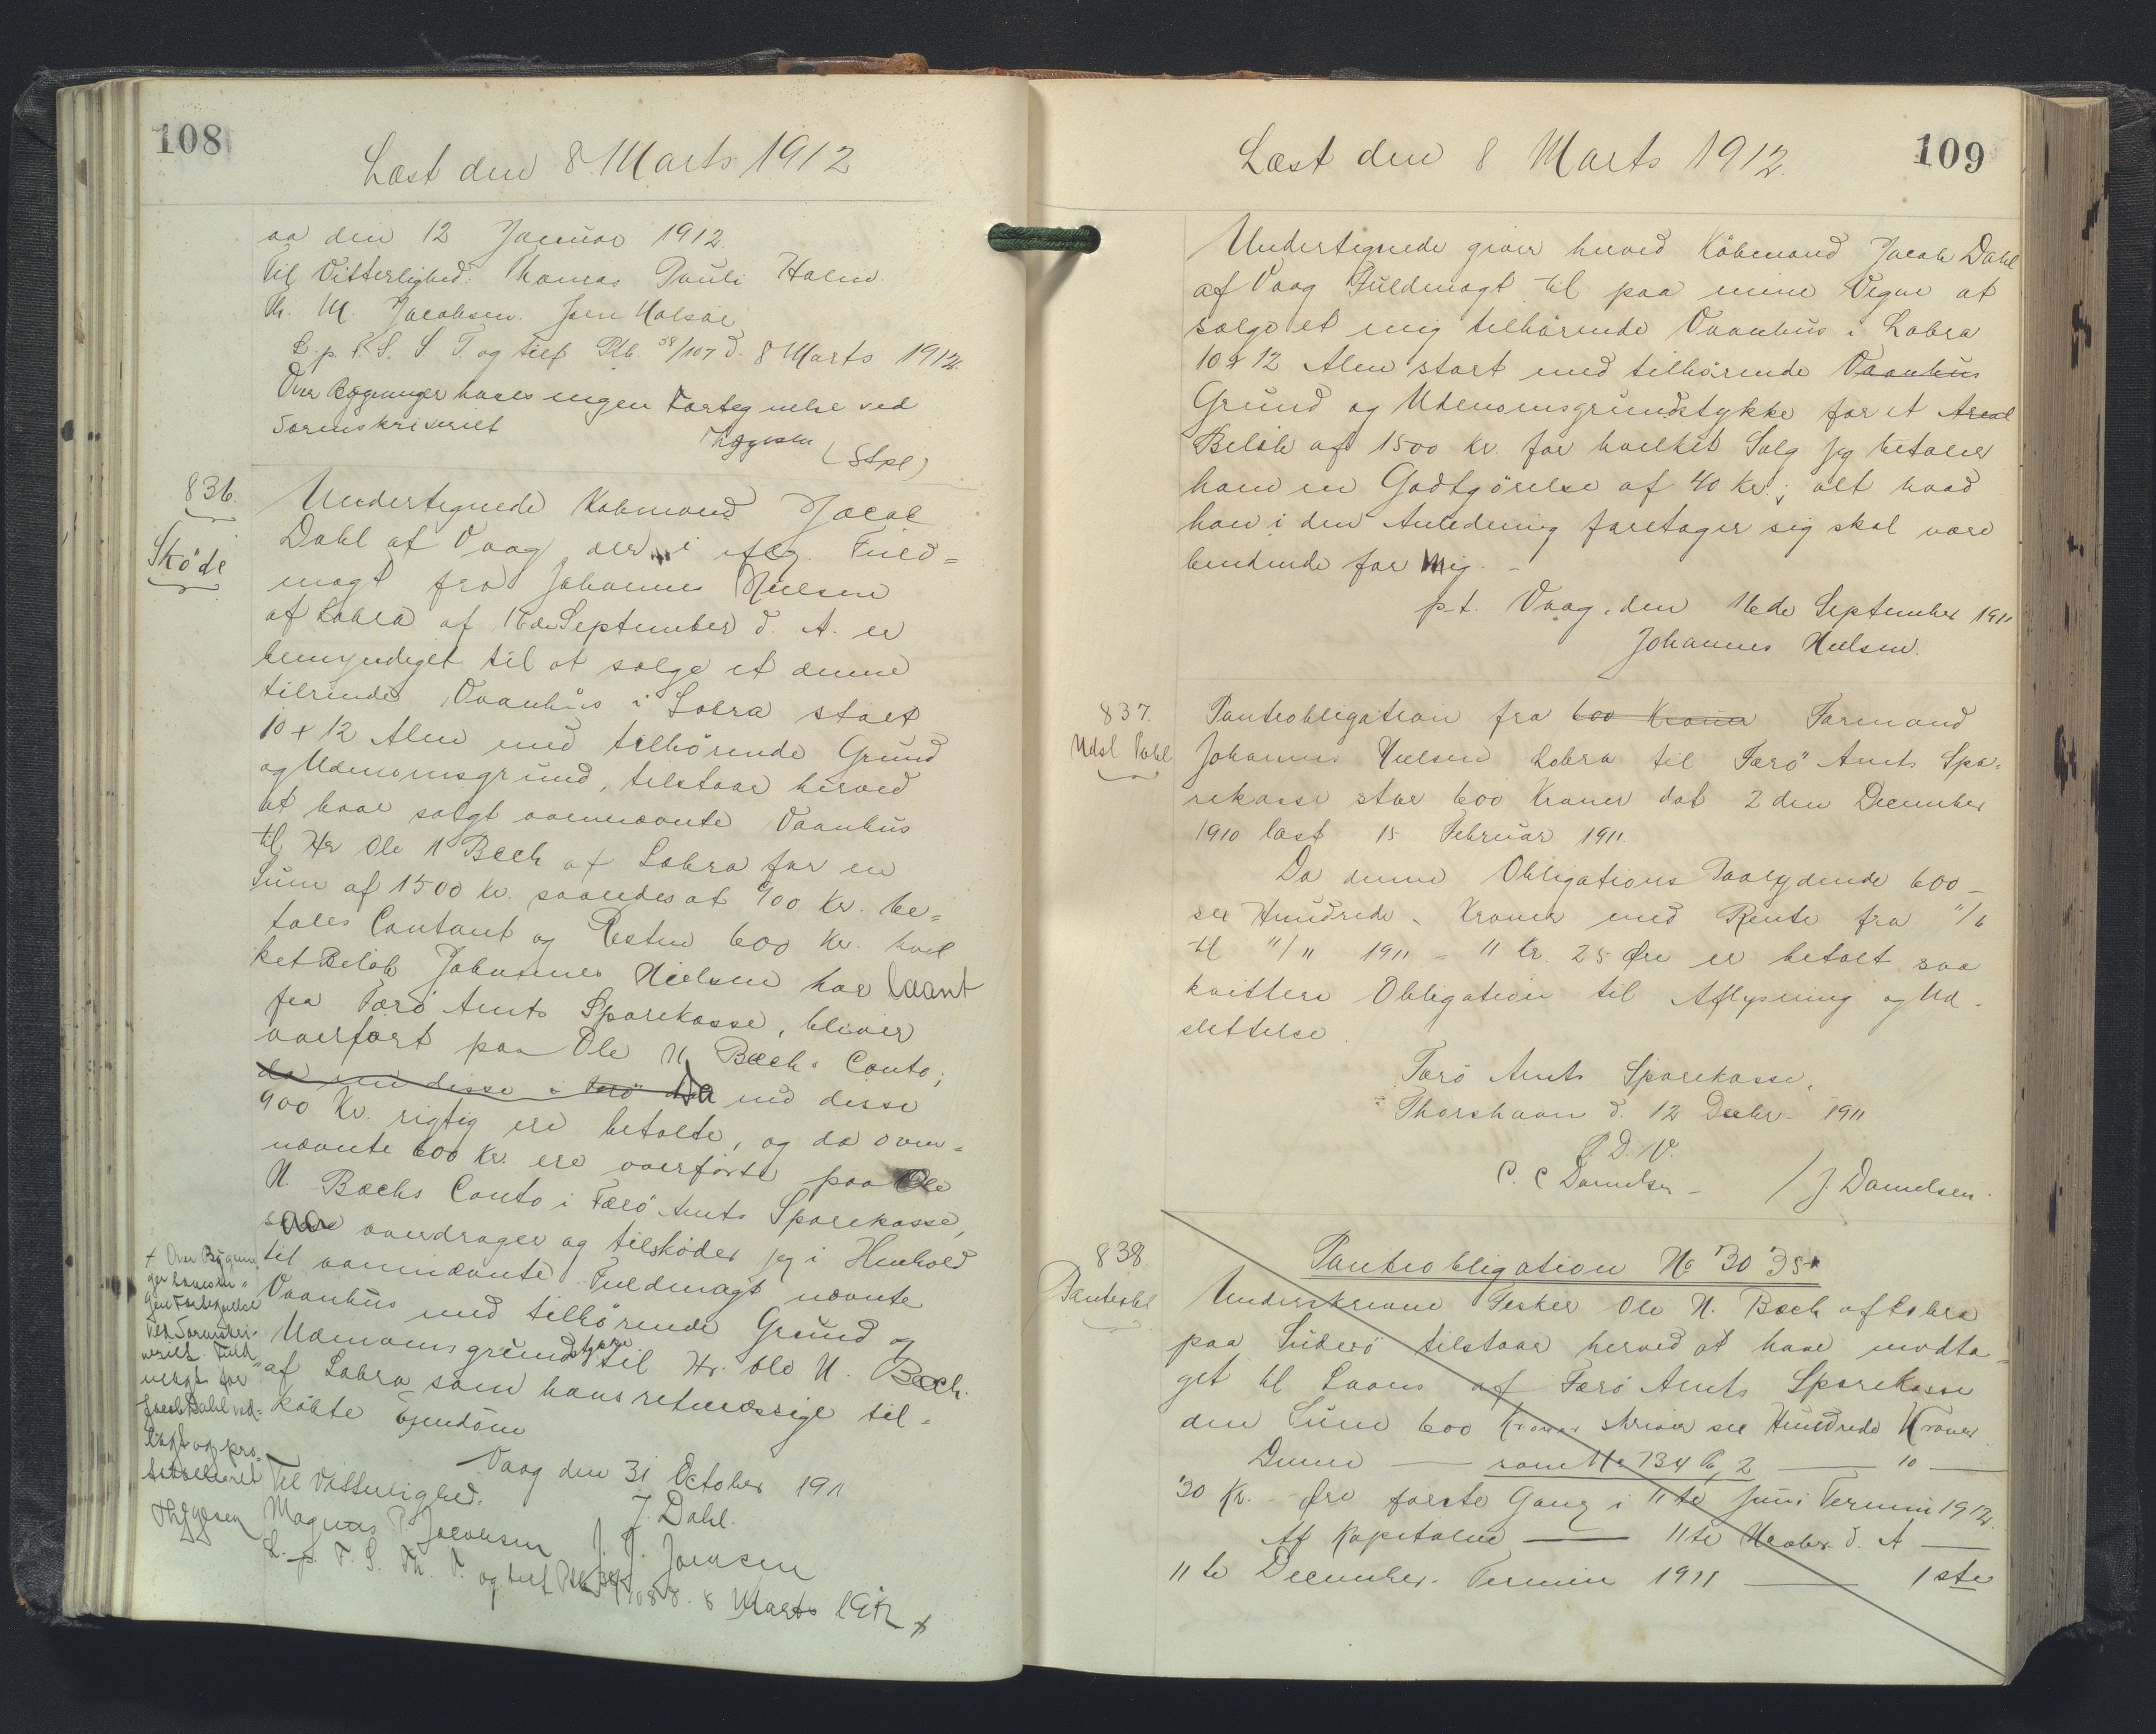 108
Læst den 8 Marts 1912
aa den 12 Januar 1912.
Til Vitterlighed: Thomas Pauli Holm.
M. Jacobsen.
L. p. F. S. S T. og tilf Ptb. 38/107 d. 8 Marts 1912.
Over Bygninger haves ingen Forteg nelse ved
Sorenskriveriet
(Stpl)
836.
Sköde
Undertegnede Kobmand Jacob
Dahl af Vaag der i flg. Fuld=
magt fra Johannes Nielsen
af Lobra af 16de September d. A. er
bemyndiget til at sælge et denne
tilrende Vaanhus i Lobra stort
10 + 12 Alen med tilhörende Grund
og Udenomsgrund, tilstaar herved
at have solgt ovennævnte Vaanhus
til Hr Ole N Bæch af Lobra for en
Sum af 1500 Kr. saaledes at 900 Kr. be=
tales Contant og Resten 600 Kr. hvil
ket Belöb Johannes Nielsen har laant
fra Færö Amts Sparekasse, bliver
overfört paa Ole N Bæchs Conto;
da nu disse i Færö Da nu disse
900 Kr. rigtig ere betalte, og da oven=
nævnte 600 Kr. ere overförte paa Ole
N. Bæchs Conto i Færö Amts Sparekasse,
saa overdrager og tilsköder jeg i Henhold
til ovennævnte Fuldmagt nævnte
Vaanhus med tilhörende Grund og
Udenomsgrundstykke til Hr. Ole N. Bæch.
af Lobra som hans retmæssige til=
köbte Ejendom
Vaag den 31 October 1911
Til Vitterlighed.
J. Dahl.
Magnus P. Jacobsen J. J. Joensen
L. p. F. S. Th. T. og tilf Ptb 38/108 d. 8 Marts 1912 +
+ Over Bygnin
ger haves in=
gen Fortegnelse
ved Sorenskri-
veriet. Fuld=
magt for
Jacob Dahl ved=
lagt og pro=
tocolleret
109
Læst den 8 Marts 1912.
Undertegnede giver herved Köbmand Jacob Dahl
af Vaag Fuldmagt til paa mine Vegne at
sælge et mig tilhörende Vaanhus i Lobra
10 + 12 Alen stort med tilhörende Vaanhus
Grund og Udenomsgrundstykke for et Areal
Belöb af 1500 Kr. for hvilket Salg jeg betaler
ham en Godtgörelse af 40 Kr.; alt hvad
han i den Anledning foretager sig skal være
bindende for Mig. -
p.t. Vaag, den 16de September 1911
Johannes Nielsen.
837.
Udsl Pobl
Panteobligation fra 600 Kroner Formand
Johannes Nielsen Lobra til Færö Amts Spa=
rekasse stor 600 Kroner dat 2 den December
1910 læst 15 Februar 1911.
Da denne Obligations Paalydende 600 -
sex Hundrede - Kroner med Rente fra 11/6
til 11/11 1911 = 11 Kr. 25 Øre er betalt saa
kvittere Obligation til Aflysning og Ud-
slettelse.
Færö Amts Sparekasse,
Thorshavn d. 12 Decbr. 1911
P. D. V.
C. C Danielsen - / J. Danielsen.
838.
Panteobl
Panteobligation No 3035
Underskrevne Fisker Ole N. Bæch af Lobra
paa Suderö tilstaar herved at have modta=
get til Laans af Færö Amts Sparekasse
den Sum 600 Kroner skriver sex Hundrede Kroner
Denne — som No 734 P, 2 — 10 —
30 Kr. - Øre förste Gang i 11te Juni Termin 1912.
Af Kapitalen — 11te Novbr. d. A —
11te December. Termin 1911 — 1ste